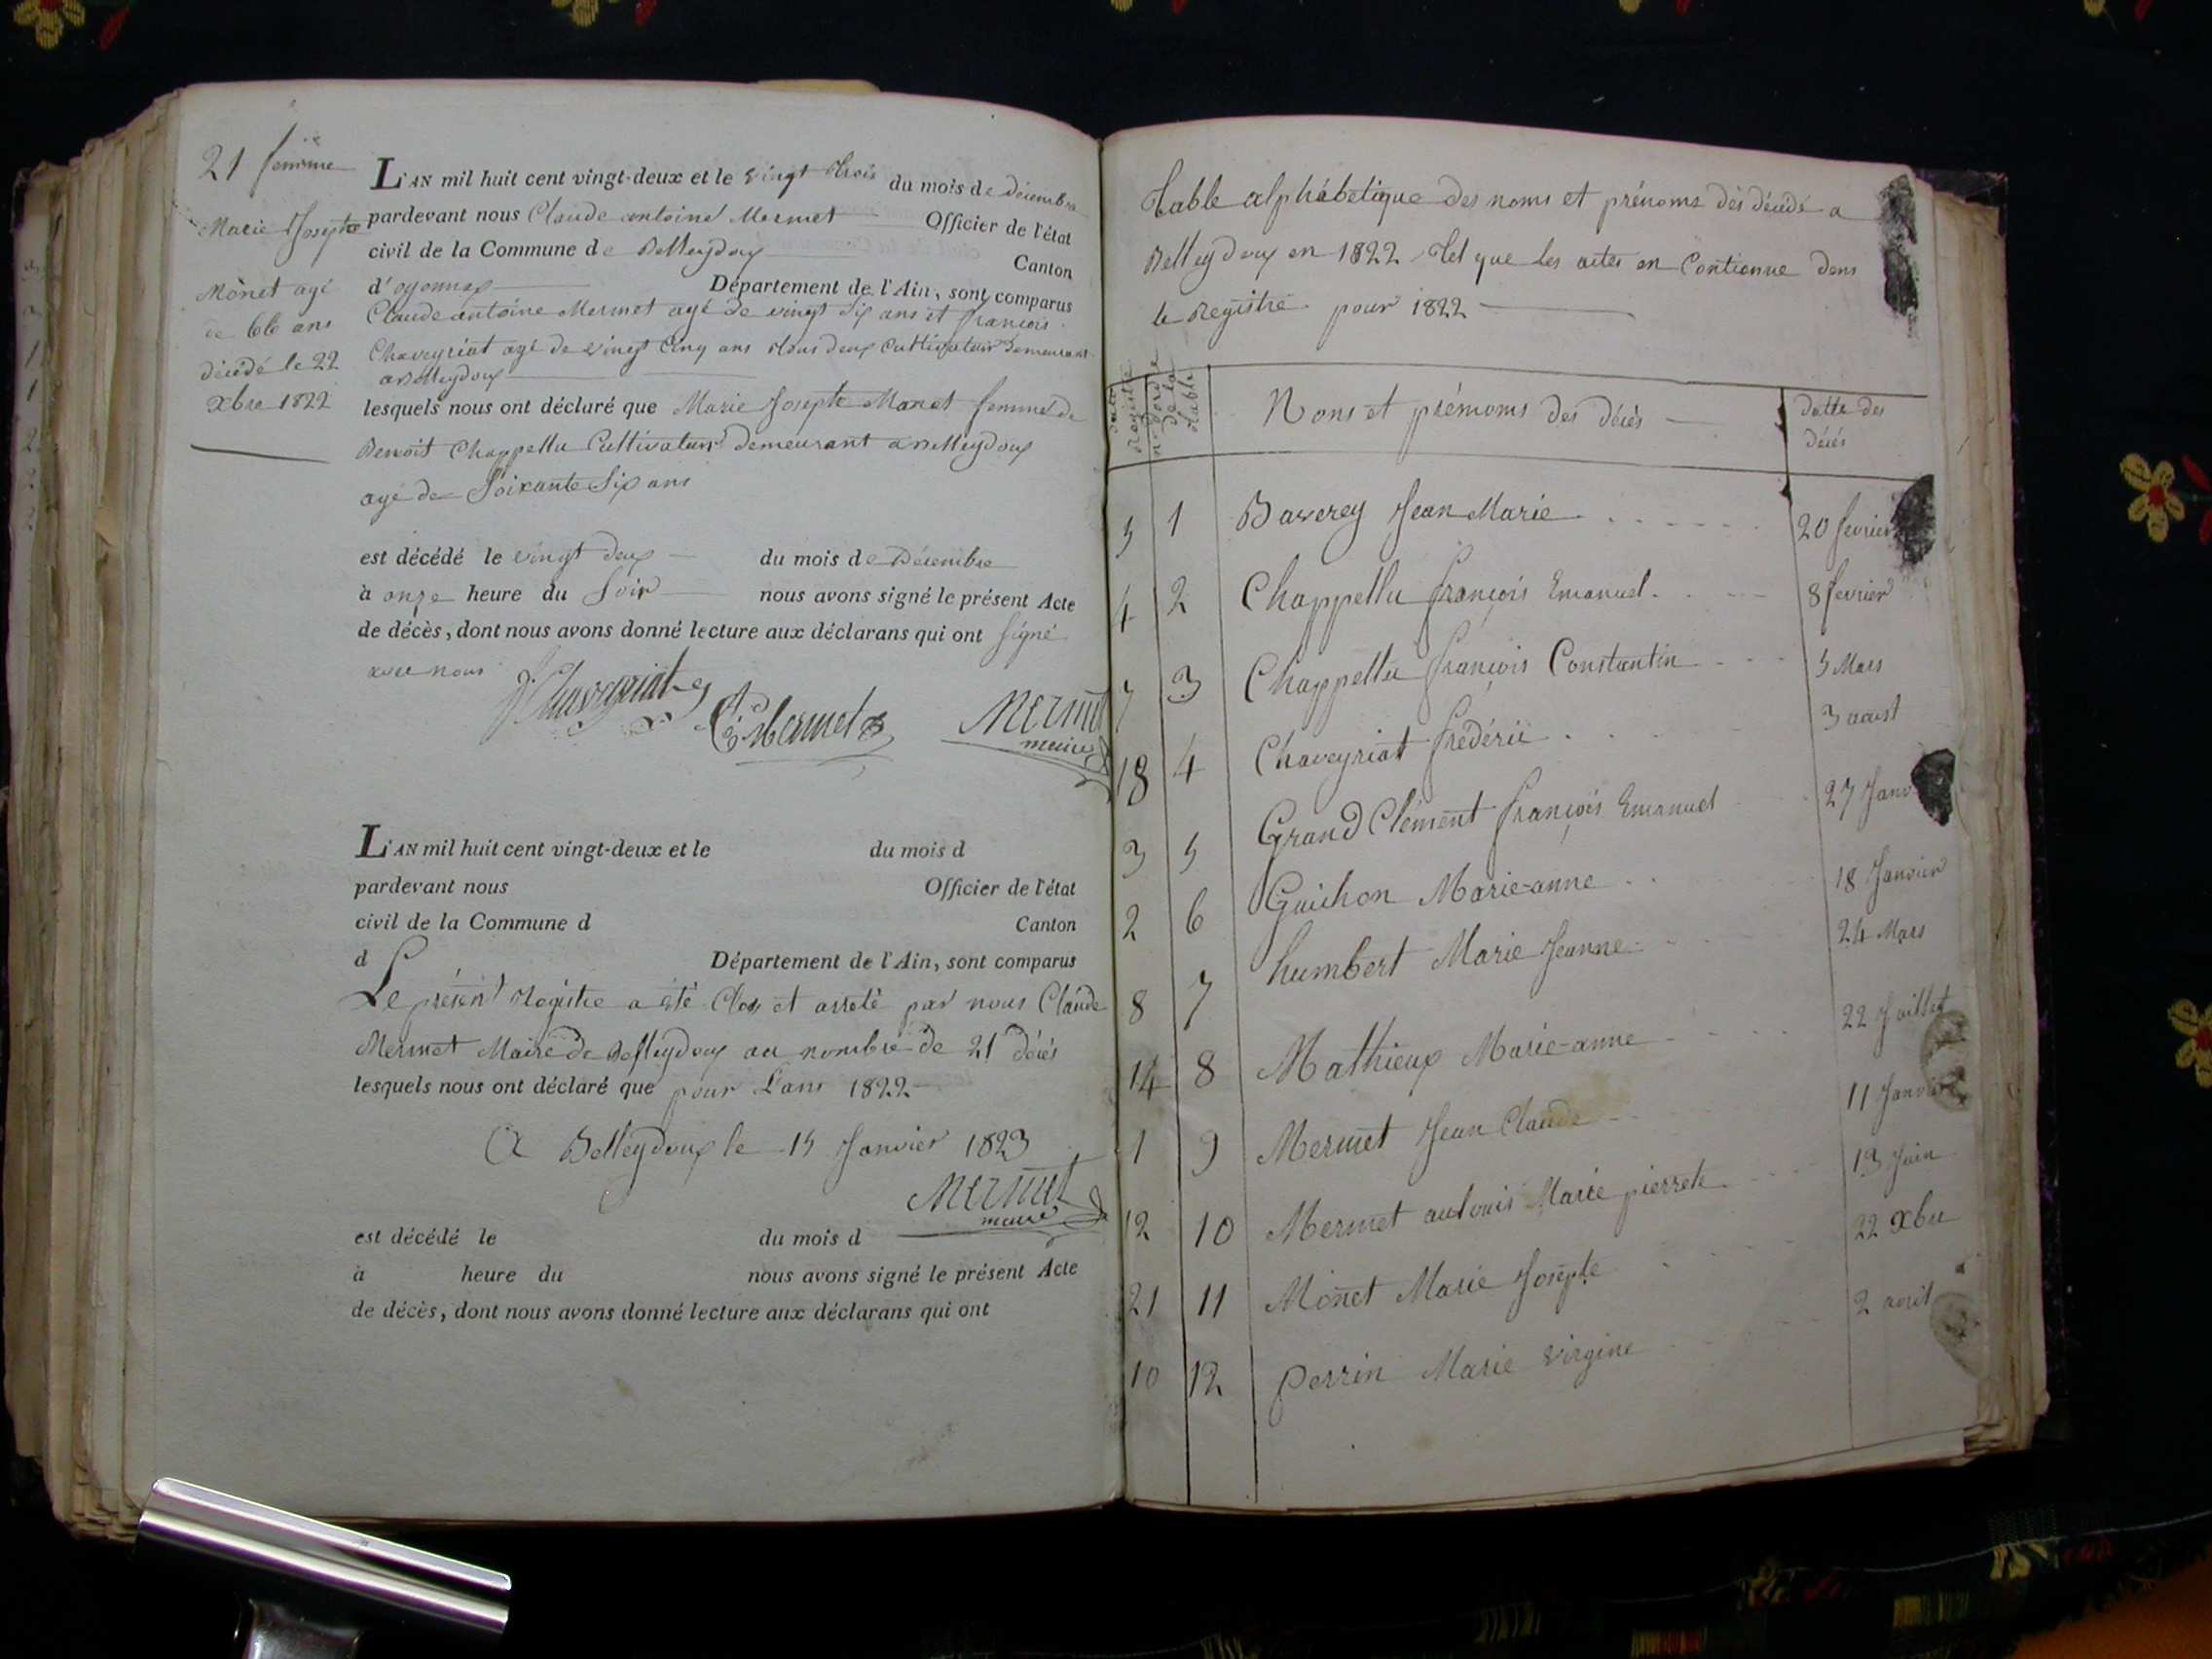 21 femme
Marie Josepte
Monet agé
de 66 ans
décédé le 22
xbre 1822
L'AN mil huit cent vingt-deux et le vingt trois du mois de décembre
pardevant nous Claude antoine Mermet Officier de l'état
civil de la Commune de Belleydoux Canton
d'oyonnax Département de l'Ain, sont comparus
Claude antoine Mermet agé de vingt six ans et françois
Chaveyriat agé de vingt cinq ans tous deux cultivateur demeurant
a Belleydoux
lesquels nous ont déclaré que Marie Josepte Monet femme de
Benoit Chappellu Cultivateur demeurant a Belleydoux
agé de Soixante Six ans
est décédé le vingt deux du mois de Décembre
à onze heure du Soir nous avons signé le présent Acte
de décès, dont nous avons donné lecture aux déclarans qui ont signé
avec nous
f Chaveyriat
C A Mermet
Mermet
maire
L'AN mil huit cent vingt-deux et le du mois d
pardevant nous Officier de l'état
civil de la Commune d Canton
d Département de l'Ain, sont comparus
Le présent Registre a été Clos et arreté par nous Claude
Mermet Maire de Belleydoux au nombre de 21 décés
lesquels nous ont déclaré que pour L'ans 1822
A Belleydoux le 15 Janvier 1823
Mermet
maire
est décédé le du mois d
à heure du nous avons signé le présent Acte
de décès, dont nous avons donné lecture aux déclarans qui ont
Table alphabetique des noms et prénoms des décédé a
Belleydoux en 1822 Tel que Les actes en Contienne dans
le Registre pour 1822
Registre
n° d'ordre
De la
table
Nons et prémoms des décés
datte des
décés
5 1 Baverey Jean Marie 20 fevrier
4 2 Chappellu françois Emanuel 8 fevrier
7 3 Chappellu françois Constantin 5 Mars
18 4 Chaveyriat frédéric 3 aoust
3 5 Grand Clément françois Emanuel 27 Janv
2 6 Guichon Marie-anne 18 Janvier
8 7 humbert Marie Jeanne 24 Mars
14 8 Mathieux Marie-anne 22 Juillet
1 9 Mermet Jean Claude 11 Janvier
12 10 Mermet aulouis Marie pierrete 13 Juin
21 11 Monet Marie Josepte 22 xbre
10 12 Perrin Marie virgine 2 avril